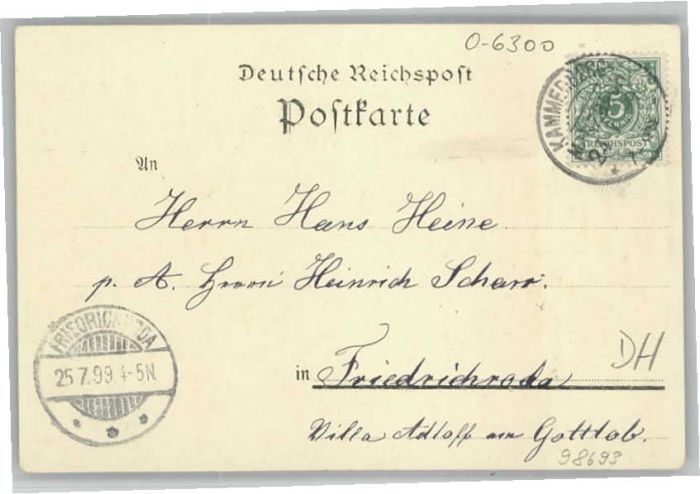 O-6300
Deutsche Reichspost
Postkarte
KAMMERBERG
5
REICHSPOST
An
Herrn Hans Heine
p. A. Herrn Heinrich Scharr.
FRIEDRICHRODA
25.7.99. 4-5N.
in Friedrichroda
DH
Villa Adloff am Gottlob.
98693